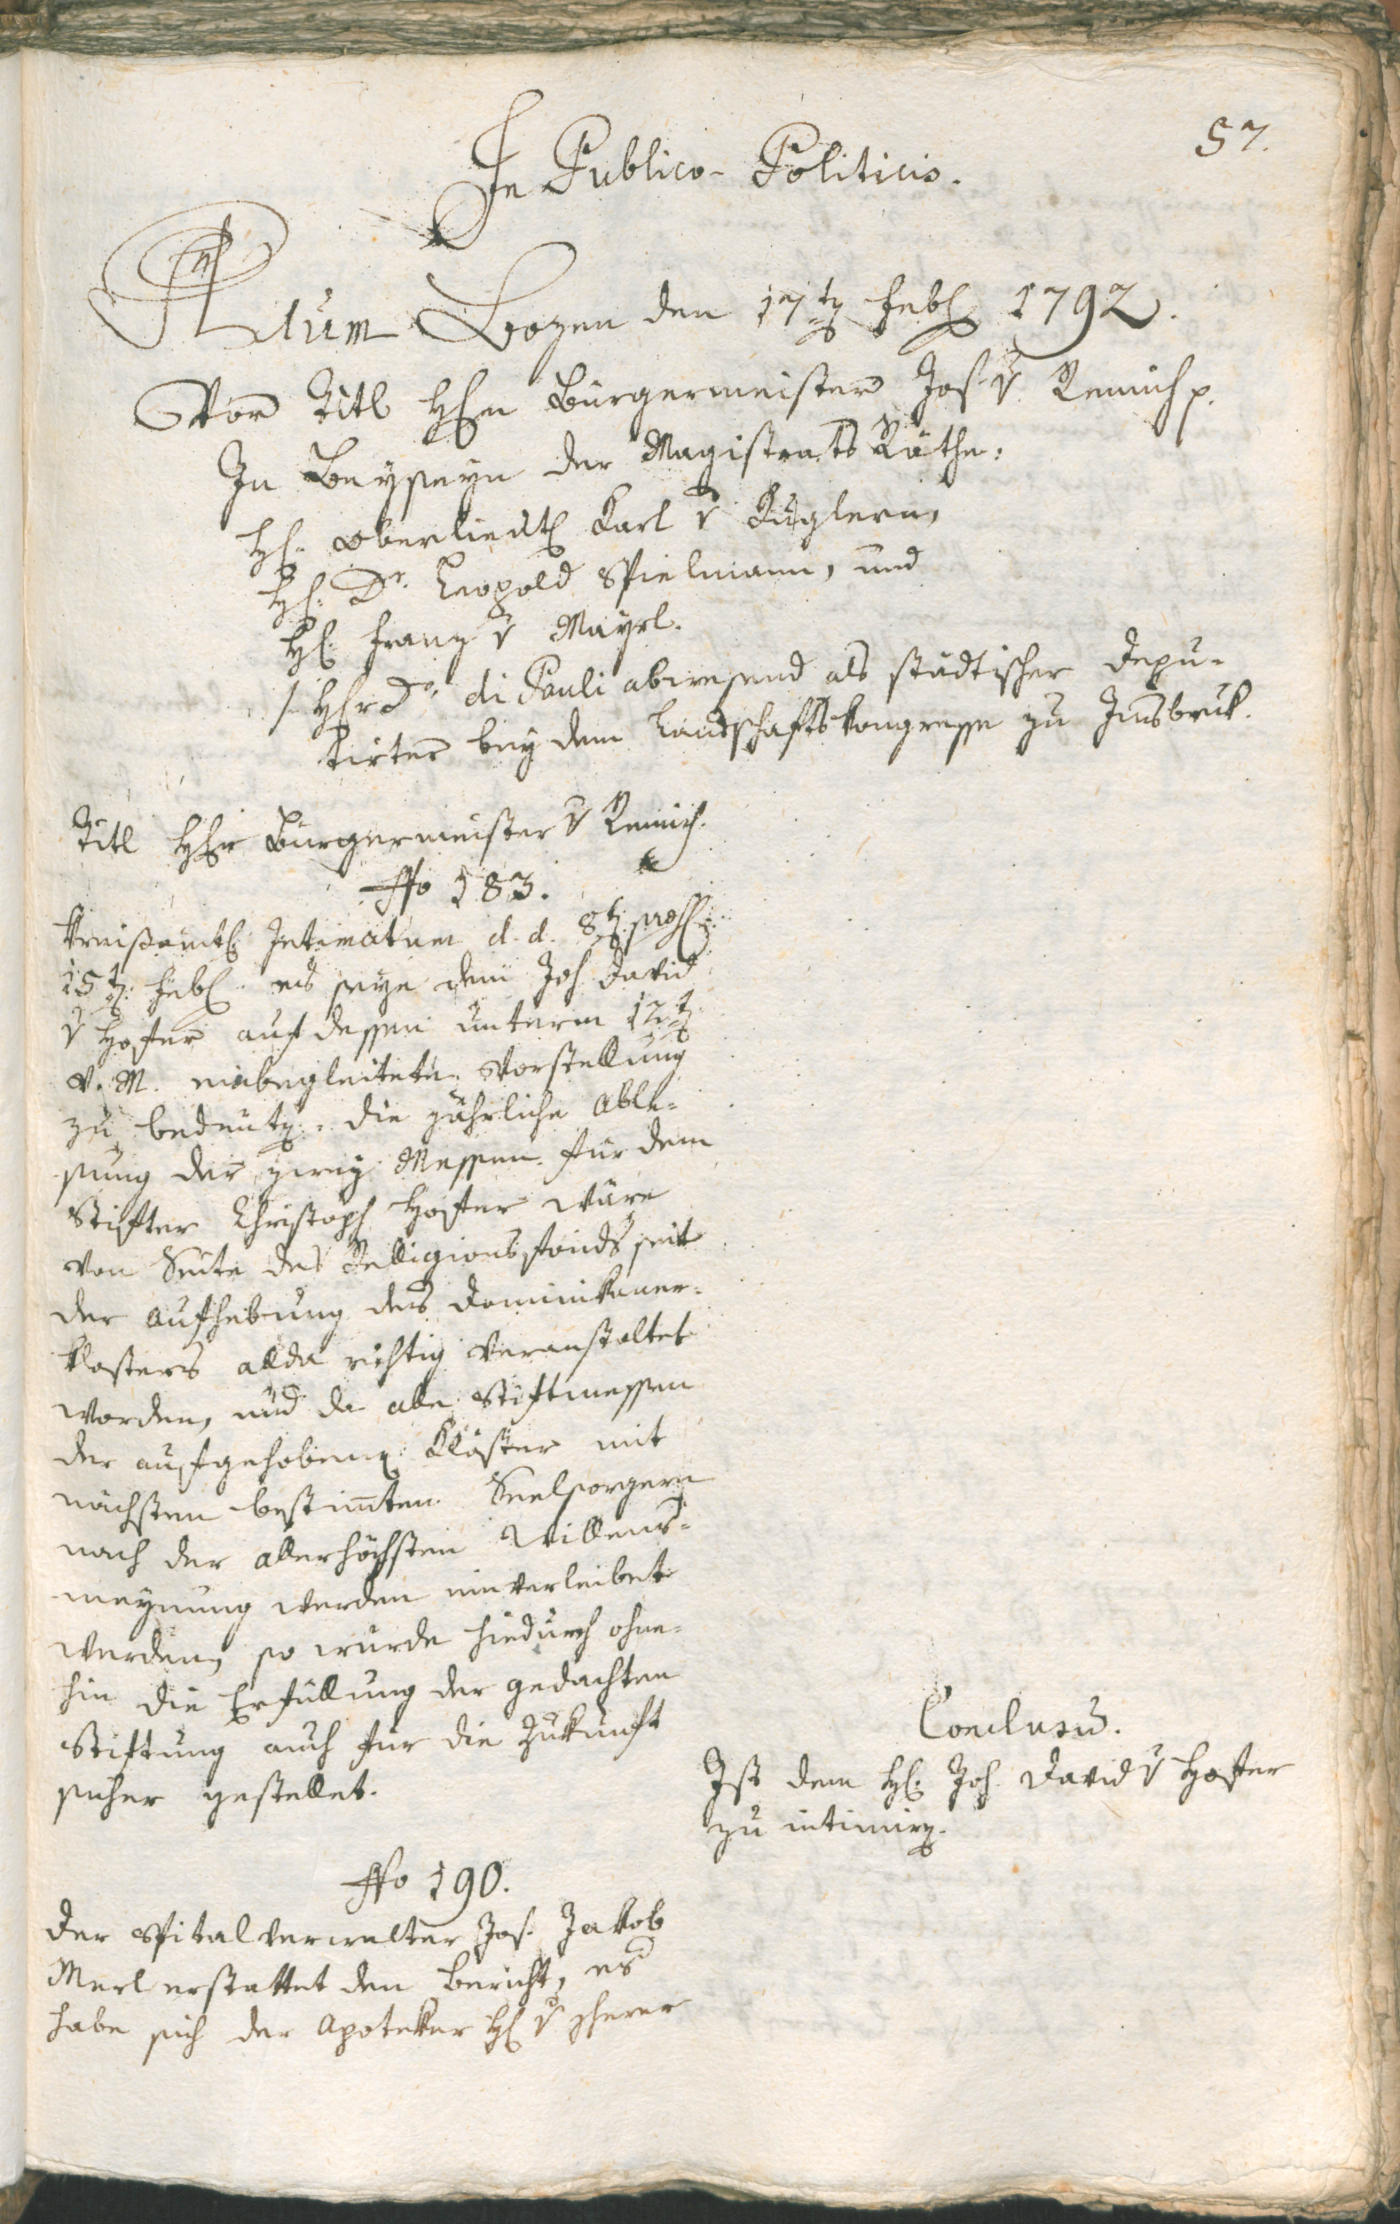 57.
In Publico-Politicis.
Actum Bozen den 17t. Feb. 1792.
Vor Titl Herrn Bürgermeister Jos. v Remich p.
In Beyseyn der Magistrats Räthe:
H. Oberlieut. Karl v Kuglern,
H. Dr. Leopold Spielmann, und
H. Franz v Mayrl.
/: Herr Dr. di Pauli abwesend als städtischer Depu-
tirter bey dem Landschaftskongresse zu Innsbruk.
Titl Herr Bürgermeister v Remich.
No 183.
Kreißamtl. Intimatum d. d. 8t.
15t. Feb. es seye dem Joh. David
v Hofer auf dessen unterm 12t.
v. M. einbegleitete Vorstellung
zu bedeuten: die jährliche Able-
sung der zwey Messen für dem
Stifter Christoph Hofer wäre
von Seite des Religionsfonds seit
der Aufhebung des Dominikaner-
klosters allda richtig veranstaltet
worden, und da alle Stiftmessen
der aufgehobenen Klöster mit
nächsten bestimten Seelsorgern
nach der allerhöchsten Willens-
meynung werden einverleibet
werden, so wurde hiedurch ohne-
hin die Erfüllung der gedachten
Stiftung auch für die Zukunft
sicher gestellet.
Conclusum.
Ist dem H. Joh. David v Hofer
zu intimiren.
No 190.
Der Spitalverwalter Jos. Jakob
Merl erstattet den Bericht, es
habe sich der Apoteker H. v